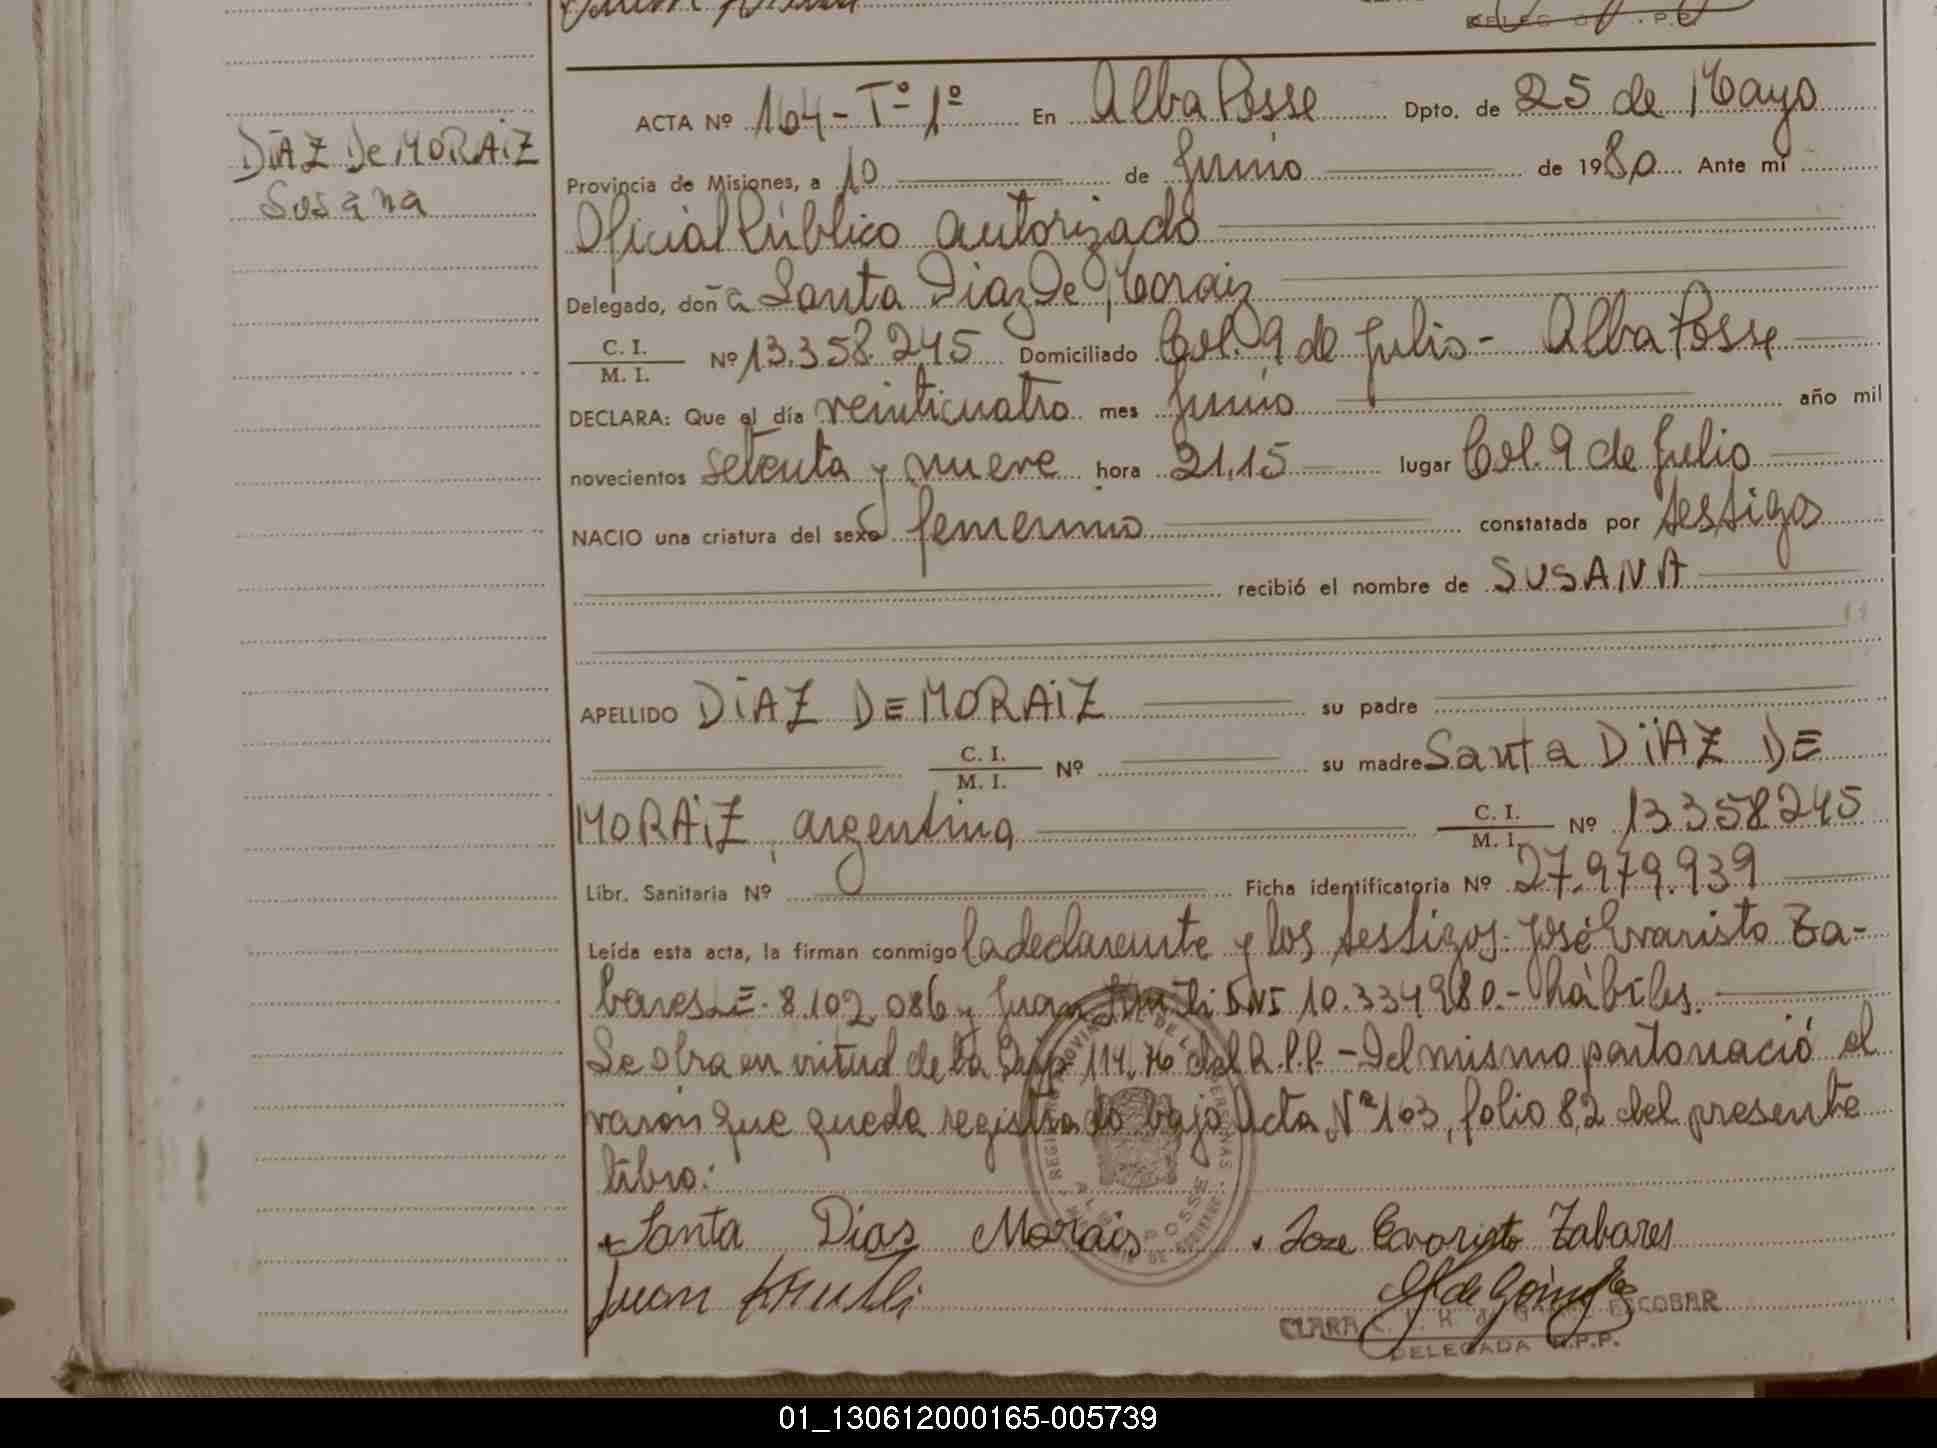 DELEG
R.P.P
DiAZ De MORAiZ
Susana
ACTA Nº 104 - Tº 1º En Alba Posse Dpto. de 25 de Mayo
Provincia de Misiones, a 10 de Junio de 1980 Ante mí
Oficial Público autorizado
Delegado, doña Santa Diaz De Moraiz
C. I.
M. I.
Nº 13.358.245 Domiciliado Col. 9 de Julio - Alba Posse
DECLARA: Que el día veinticuatro mes Junio año mil
novecientos setenta y nueve hora 21,15 lugar Col. 9 de Julio
NACIO una criatura del sexo femenino constatada por testigos
recibió el nombre de SUSANA
APELLIDO DiAZ DE MORAiZ su padre
C. I.
M. I.
Nº su madre Santa DiAZ DE
MORAiZ, argentina C. I.
M. I.
Nº 13358245
Libr. Sanitaria Nº Ficha identificatoria Nº 27.979.939
Leída esta acta, la firman conmigo la declarente y los testigos: José Evaristo Ta-
bares LE. 8.102.086 y Juan DNI 10.334980.- hábiles.
Se obra en virtud de la Disp 114/76 del R.P.P. - Del mismo parto nació el
varón que queda registrado bajo Acta Nº 103, folio 82 del presente
libro:
Santa Dias Morais Joze Evaristo Tabares
Juan
CLARA ESCOBAR
DELEGADA R.P.P.
ALBA POSSE
01_130612000165-005739